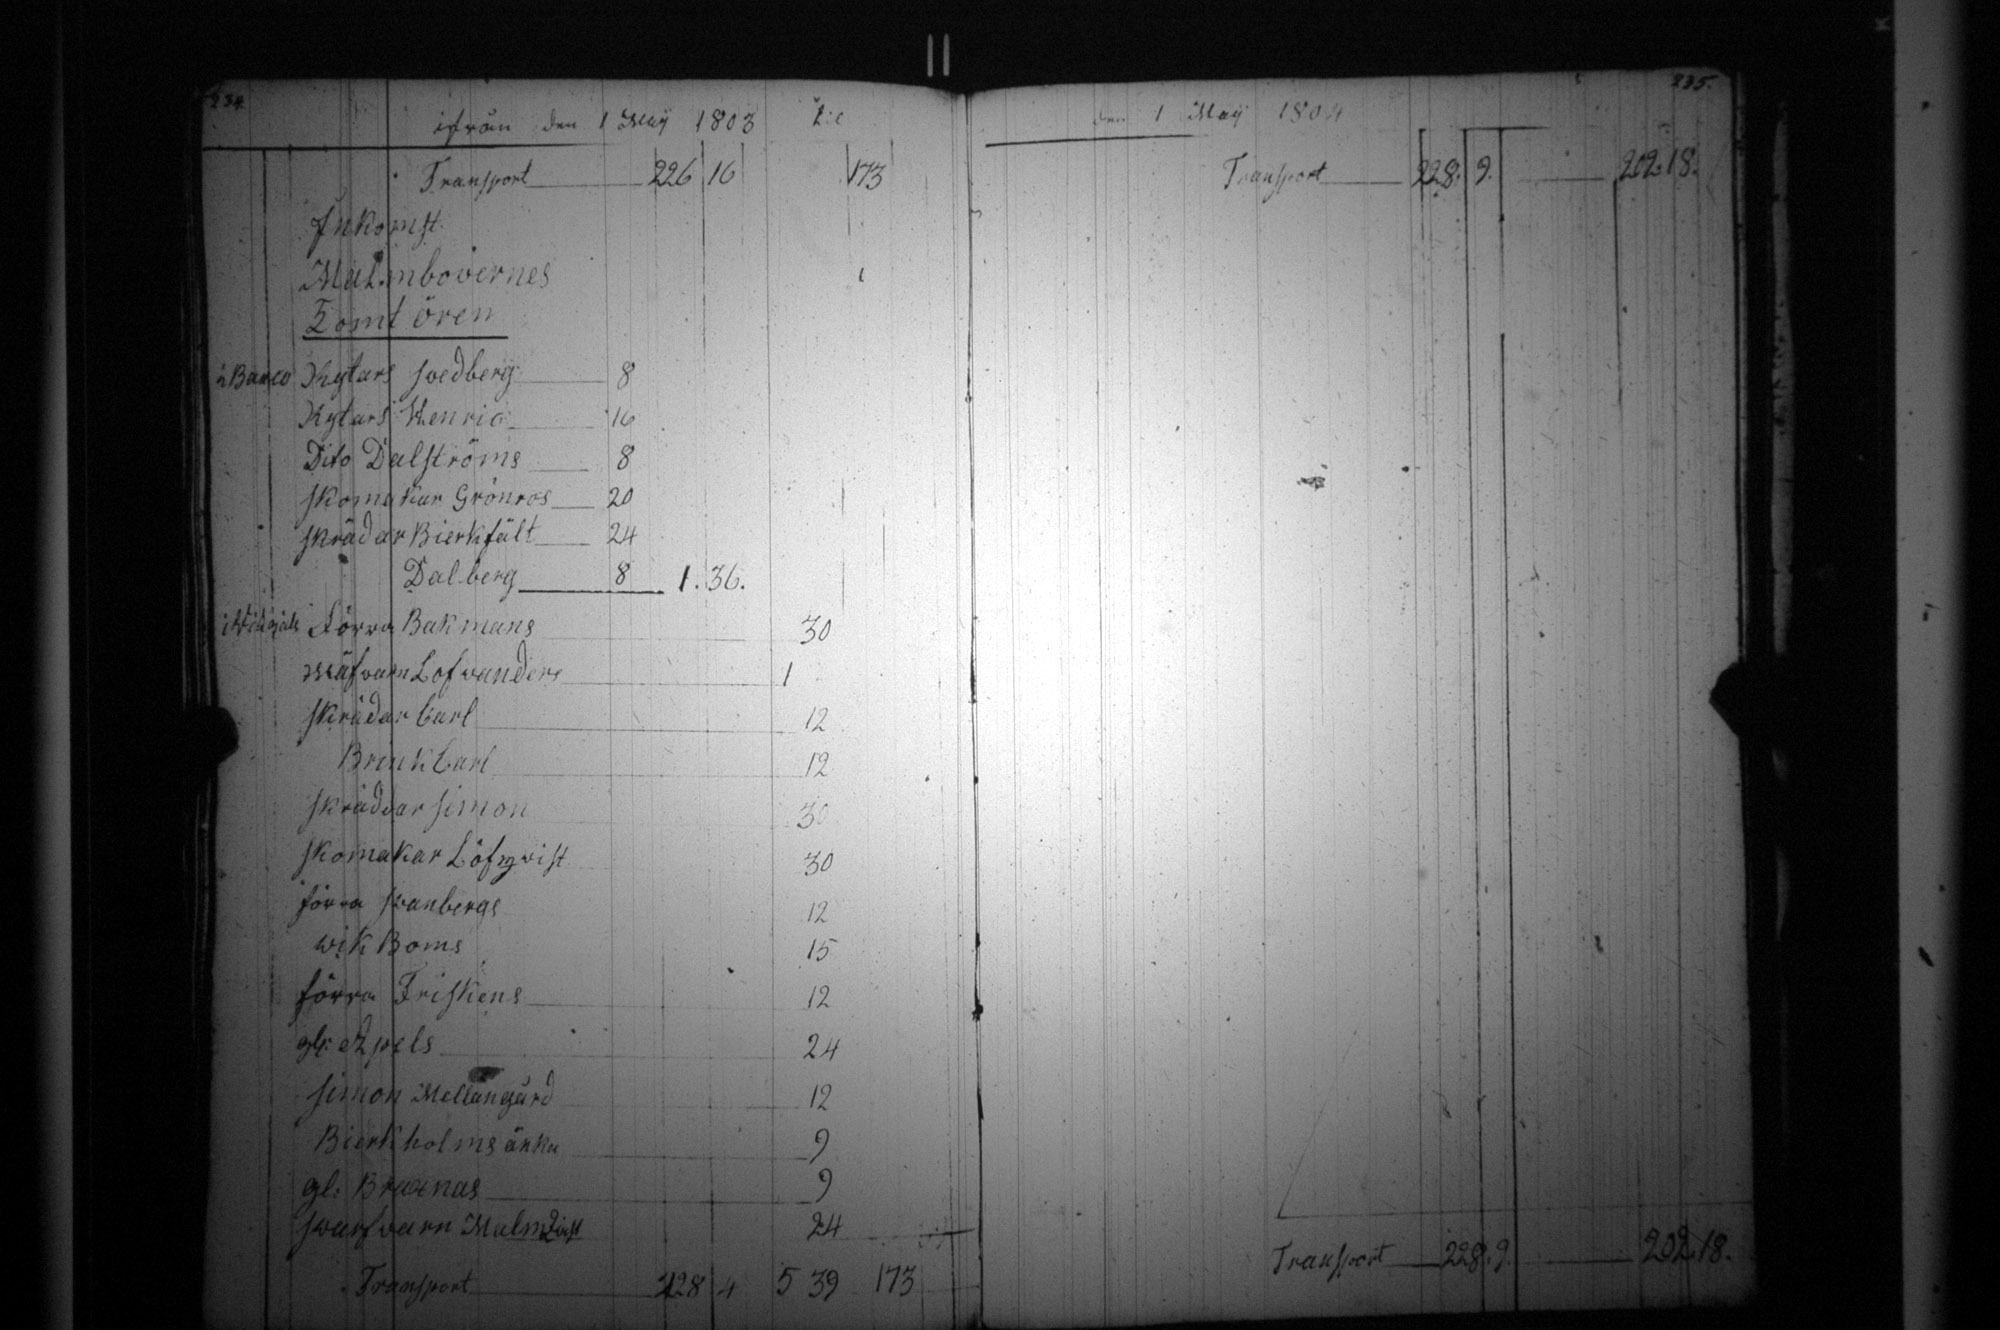 234.
ifrån den 1 Maij 1803 til
Transport 226 16 173
Inkomst
Malmbovernes
Tomt ören
i Banco Rytars Svedberg 8
Rytars Henric 16
Dito Dalströms 8
Skomakar Grönros 20
Skrädar Bierkfält 24
Dalberg 8 1.36.
i Riksgäls Förra Bakmans 30
Löfvanders 1
Skrädar Carl 12
Bruuk Carl 12
Skräddar Simon 30
Skomakar Löfqvist 30
förra Svanbergs 12
wik Boms 15
förra Friskens 12
gl: Apels 24
Simon Mellangård 12
Bierkholms änka 9
gl: Braxnas 9
Svarfvarn Malmqvist 24
Transport 228 4 5 39 173
235.
den 1 Maij 1804
Transport 228. 9. 202.18.
Transport 228. 9. 202.18.